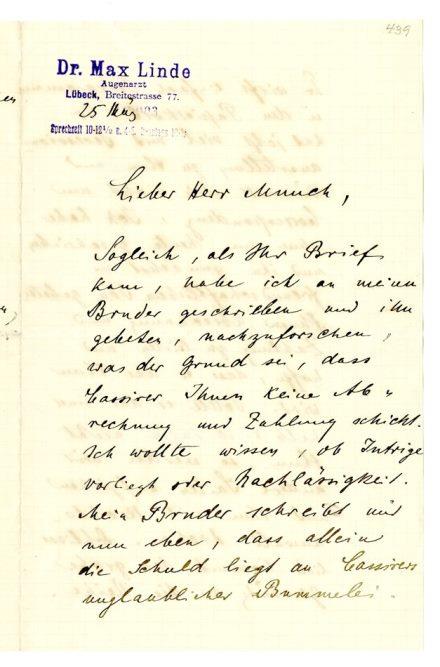 499
Dr. Max Linde
Augenarzt
Lübeck, Breitestrasse 77.
25 März 1903
Sprechzeit 10-12½ u. 4-5.
Lieber Herr Munch,
Sogleich, als Ihr Brief
kam, habe ich an meinen
Bruder geschrieben und ihn
gebeten, nachzuforschen,
was der Grund sei, dass
Cassirer Ihnen keine Ab-
rechnung und Zahlung schickt.
Ich wollte wissen, ob Intrige
vorliegt oder Nachlässigkeit.
Mein Bruder schreibt mir
nun eben, dass allein
die Schuld liegt an Cassirers
unglaublicher Bummelei.